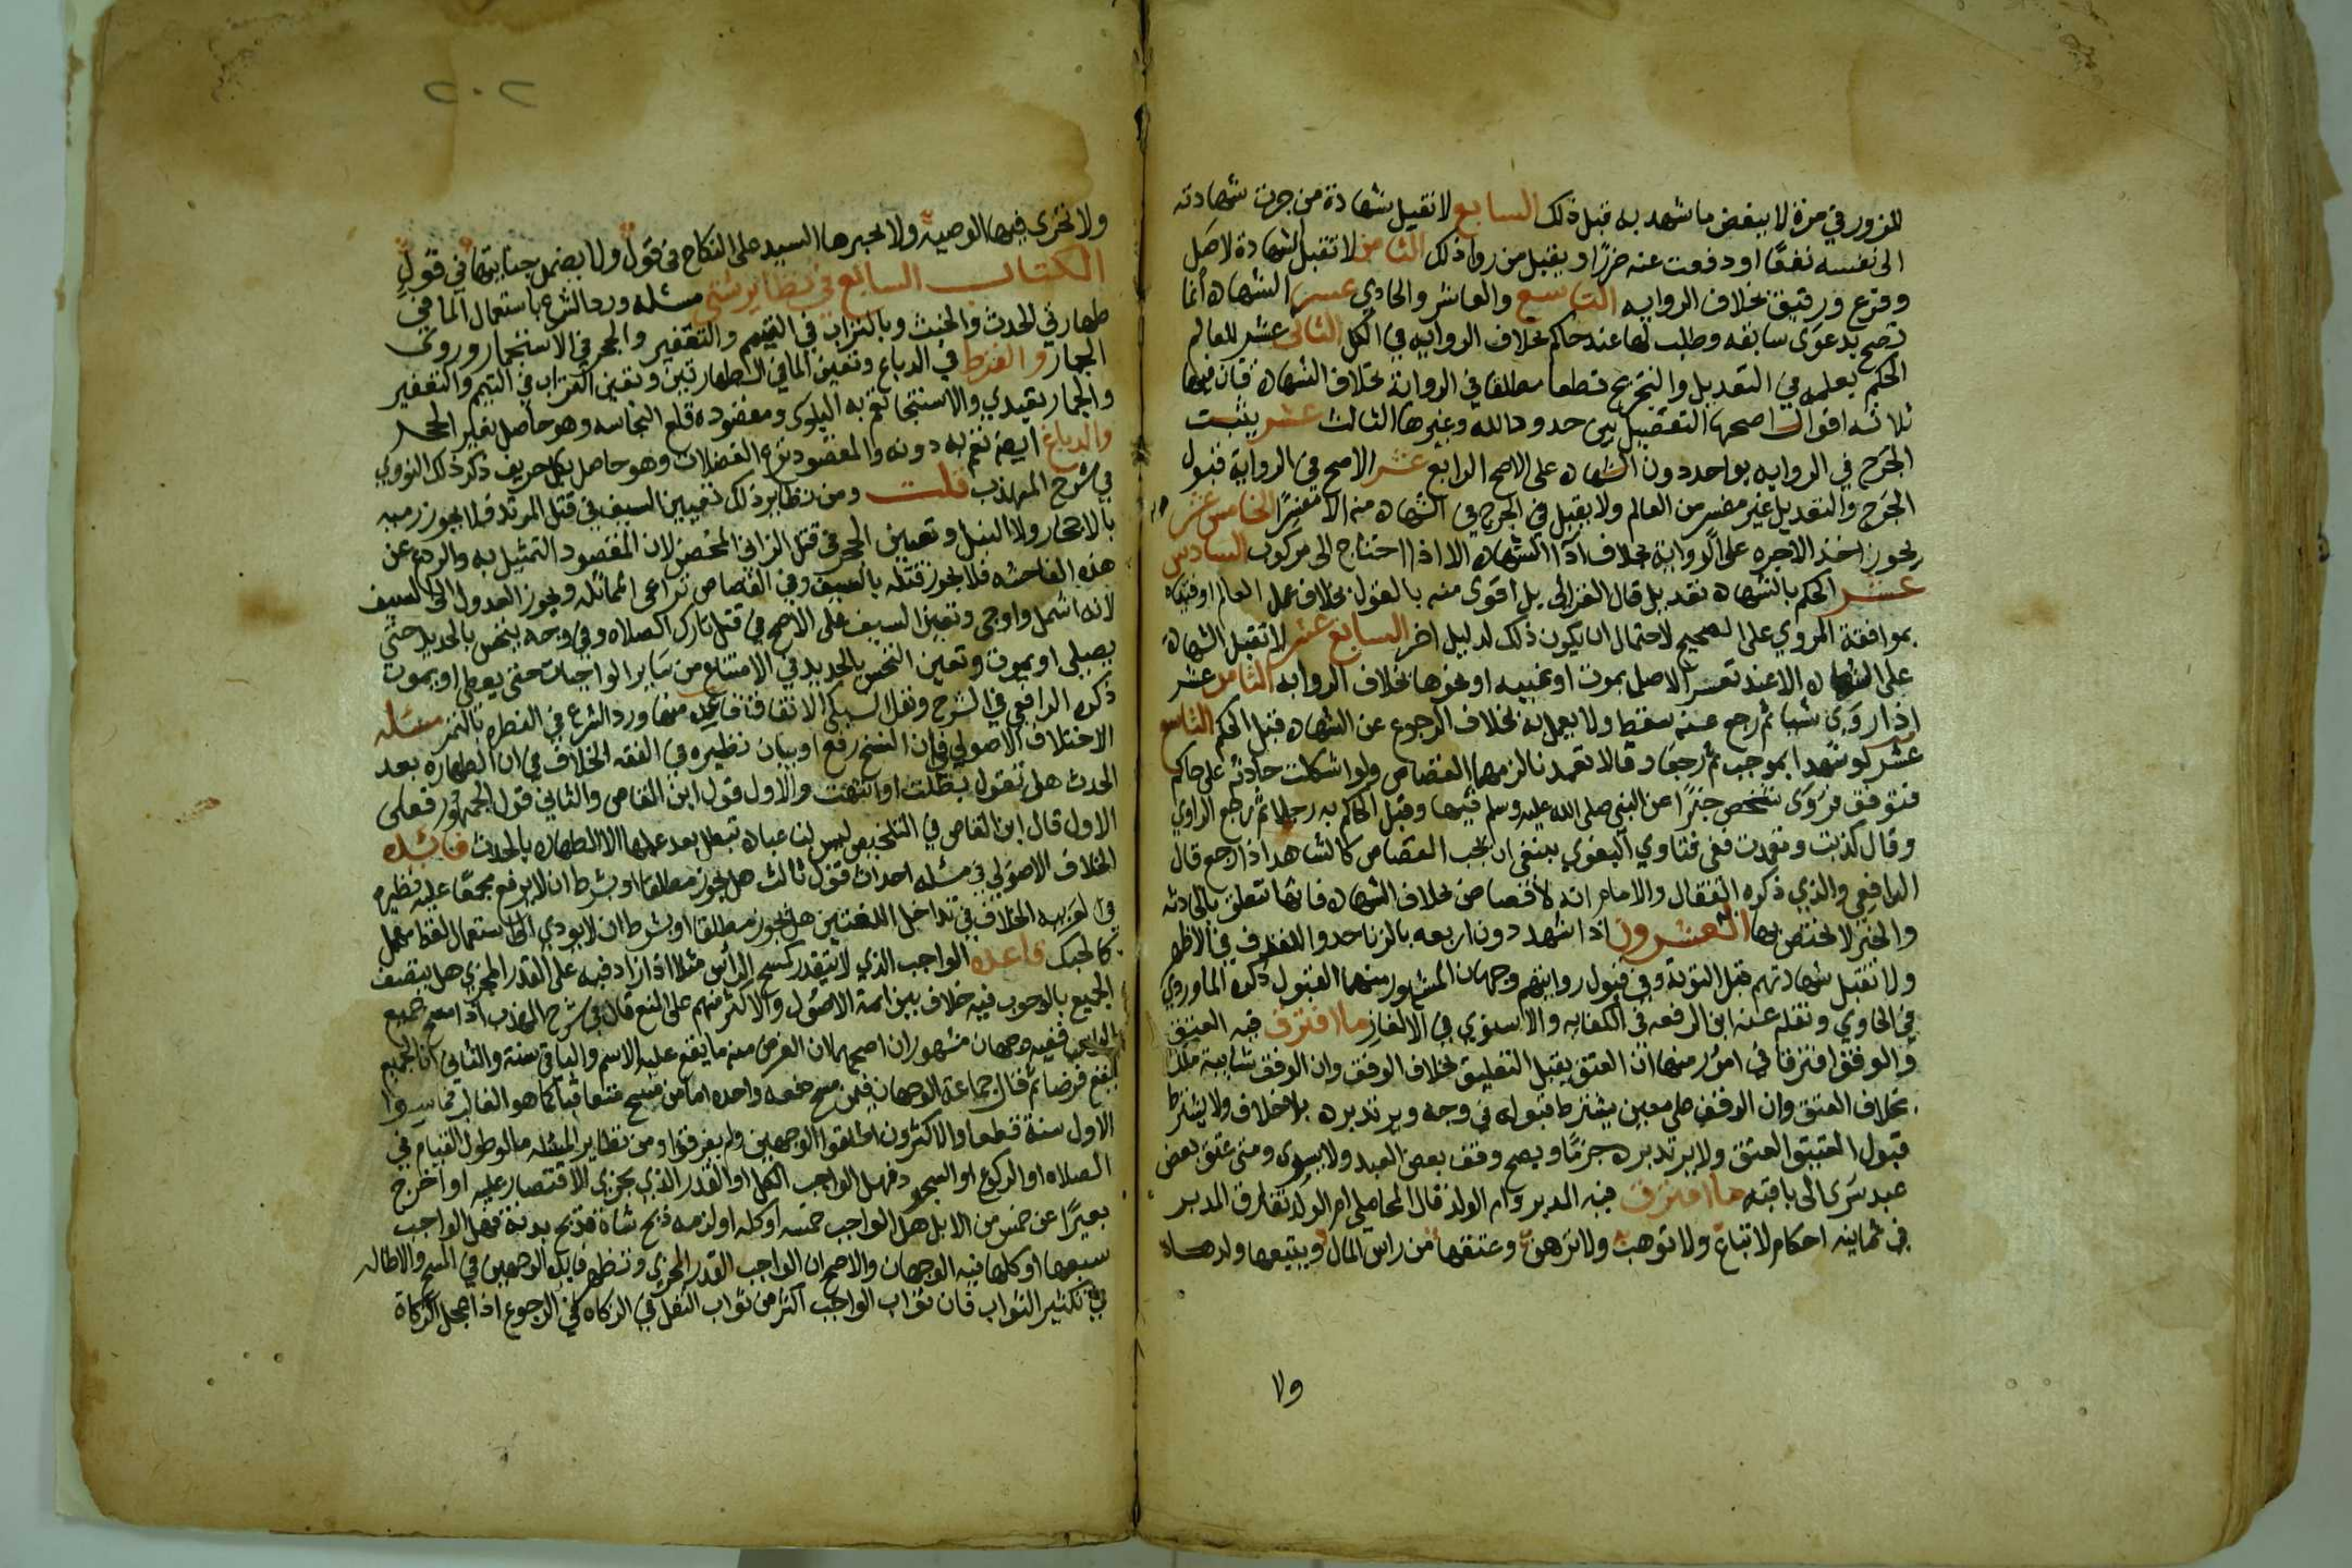 للزور في مرة لا ينقض ما شهد به قبل ذلك السابع لا تقبل شهادة من جرت شهادته
الى نفسه نفعا او دفعت عنه ضررا وتقبل من روا ذلك الثامن لا تقبل الشهادة لاصل
وفرع ورقيق بخلاف الروايه التاسع والعاشر والحادي عشر الشهاده انما
تصح بدعوى سابقه وطلب لها عند حاكم بخلاف الروايه في الكل الثاني عشر للعالم
الحكم بعلمه في التعديل والتجريح قطعا مطلقا في الرواية بخلاف الشهاده فان فيها
ثلاثه اقوال اصحها التفصيل بين حدود الله وغيرها الثالث عشر يثبت
الجرح في الروايه بواحد دون الشهاده على الاصح الرابع عشر الاصح في الرواية قبول
الجرح والتعديل غير مفسر من العالم ولا يقبل في الجرح في الشهاده منه الا مفسرا الخامس عشر
يجوز اخذ الاجره على الرواية بخلاف ادا الشهاده الا اذا احتاج الى مركوب السادس
عشر الحكم بالشهاده تعديل قال الغزالي بل اقوى منه بالقول بخلاف عمل العالم او فتياه
بموافقة المروي على الصحيح لاحتمال ان يكون ذلك لدليل اخر السابع عشر لا تقبل الشهادة
على الشهاده الا عند تعسر الاصل بموت او غيبه او نحوها بخلاف الروايه الثامن عشر
اذا روى شيا ثم رجع عنه سقط ولا يعمل به بخلاف الرجوع عن الشهاده قبل الحكم التاسع
عشر لو شهدا بموجب ثم رجعا وقالا تعمدنا لزمهما القصاص ولو اشكلت حادثه على حاكم
فتوقف فروى شخص خبرا عن النبي صلى الله عليه وسلم فيها وقتل الحاكم به رجلا ثم رجع الراوي
وقال كذبت وتعمدت ففي فتاوي البغوي ينبغي ان يجب القصاص كالشاهد اذا رجع قال
الرافعي والذي ذكره القفال والامام انه لا قصاص بخلاف الشهاده فانها تتعلق بالحادثه
والخبر لا يختص بها العشرون اذا شهد دون اربعه بالزنا حدوا للقذف في الاظهر
ولا تقبل شهادتهم قبل التوبة وفي قبول روايتهم وجهان المشهور منهما القبول ذكره الماوردي
في الحاوي ونقله عنه ابن الرفعه في الكفايه والاسنوي في الالغاز ما افترق فيه العتق
والوقف افترقا في امور منها ان العتق يقبل التعليق بخلاف الوقف وان الوقف شايبة ملك
بخلاف العتق وان الوقف على معين يشترط قبوله في وجه ويرتد برده بلا خلاف ولا يشترط
قبول العتيق العتق ولا يرتد برده جزما ويصح وقف بعض العبد ولا يسري ومتى عتق بعض
عبد سرى الى باقيه ما افترق فيه المدبر وام الولد قال المحاملي ام الولد تفارق المدبر
في ثمانيه احكام لا تباع ولا توهب ولا ترهن وعتقها من راس المال ويتبعها ولدها
ولا
٢٠٢
ولا تجزى فيها الوصيه ولا يجبرها السيد على النكاح في قول ولا يضمن جنايتها في قول
الكتاب السابع في نظاير شتى مسئله ورد الشرع باستعمال الما في
طهارتي الحدث والخبث وبالتراب في التيمم والتعفير والحجر في الاستجمار وروى
الجمار والقرظ في الدباغ وتعين الما في الطهارتين وتعين التراب في التيمم والتعفير
والجمار تعبدي والاستنجا تعم به البلوى ومقصوده قلع النجاسه وهو حاصل بغير الحجر
والدباغ ايضا تعم به دونه والمقصود نزع الفضلات وهو حاصل بكل حريف ذكر ذلك النووي
في شرح المهذب قلت ومن نظاير ذلك تعيين السيف في قتل المرتد فلا يجوز رميه
بالاحجار ولا النبل وتعيين الحجر في قتل الزاني المحصن لان المقصود التمثيل به والردع عن
هذه الفاحشه فلا يجوز قتله بالسيف وفي القصاص تراعى المماثله ويجوز العدول الى السيف
لانه اشمل واوحى وتعين السيف على الاصح في قتل تارك الصلاه وفي وجه ينخس بالحديد حتى
يصلي او يموت وتعين النخس بالحديد في الامتناع من ساير الواجبات حتى يعطي او يموت
ذكره الرافعي في الشرح ونقل السبكي الاتفاق عليه منها ورد الشرع في الفطر بالتمر مسئله
الاختلاف الاصولي في ان النسخ رفع او بيان نظيره في الفقه الخلاف في ان الطهاره بعد
الحدث هل نقول بطلت او انتهت والاول قول ابن القاص والثاني قول الجمهور فعلى
الاول قال ابن القاص في التلخيص ليس لنا عباده تبطل بعد عملها الا الطهاره بالحدث فائده
الخلاف الاصولي في مسئله احداث قول ثالث هل يجوز مطلقا او بشرط ان لا يرفع مجمعا عليه نظيره
في العربيه الخلاف في تداخل اللغتين هل يجوز مطلقا او بشرط ان لا يودي الى استعمال لفظ مهمل
كالحبك قاعده الواجب الذي لا يتقدر كمسح الرأس مثلا اذا زاد فيه على القدر المجزي هل يتصف
الجميع بالوجوب فيه خلاف بين ايمة الاصول والاكثر منهم على المنع قال في شرح المهذب اذا مسح جميع
الراس ففيه وجهان مشهوران اصحهما ان الفرض منه ما يقع عليه الاسم والباقي سنة والثاني ان الجميع
يقع فرضا ثم قال جماعة الوجهان فيمن مسح دفعه واحده اما من مسح متعاقبا كما هو الغالب فما سوا
الاول سنة قطعا والاكثرون اطلقوا الوجهين ولم يفرقوا ومن نظاير المسئله ما لو طول القيام في
الصلاه او الركوع او السجود فهل الواجب الكل او القدر الذي يجزي الاقتصار عليه او اخرج
بعيرا عن خمس من الابل هل الواجب خمسه او كله او لزمه ذبح شاة فذبح بدنة فهل الواجب
سبعها او كلها فيه الوجهان والاصح ان الواجب القدر المجزي وتظهر فايدة الوجهين في المسح والاطاله
في تكثير الثواب فان ثواب الواجب اكثر من ثواب النفل في الزكاه في الرجوع اذا عجل الزكاة